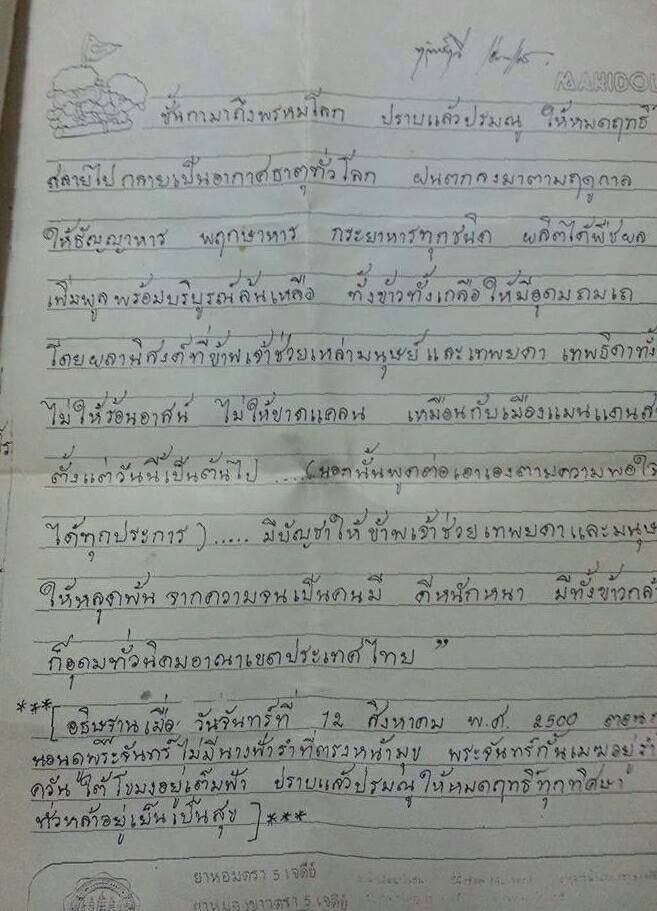 MAKIDOL
ชั้นกามาถึงพรหมโลก ปราบแล้วปรมณู ให้หมดฤทธิ์
สลายไป กลายเป็นอากาศธาตุทั่วโลก ฝนตกลงมาตามฤดูกาล
ให้ธัญญาหาร พฤกษาหาร กระยาหารทุกชนิด ผลิตได้พืชผล
เพิ่มพูลพร้อมบริบูรณ์ล้นเหลือ ทั้งข้าวทั้งเกลือให้มีอุดมถมเถ
โดยผลานิสงค์ที่ข้าพเจ้าช่วยเหล่ามนุษย์และเทพยดา เทพธิดาทั้
ไม่ให้ร้อนอาสน์ ไม่ให้ขาดแคลน เหมือนกับเมืองแมนแดนส
ตั้งแต่วันนี้เป็นต้นไป .....(นอกนั้นพูดต่อเอาเองตามความพอใจ
ได้ทุกประการ)..... มีบัญชาให้ข้าพเจ้าช่วยเทพยดาและมนุษ
ให้หลุดพ้น จากความจนเป็นคนมี ดีหนักหนา มีทั้งข้าวกล้
ก็อุดมทั่วนิคมอาณาเขตประเทศไทย ”
***[ อธิษฐานเมื่อ วันจันทร์ที่ 12 สิงหาคม พ.ศ. 2500
นอนดูพระจันทร์ ไม่มีนางฟ้ารำที่ตรงหน้ามุข พระจันทร์กั้นเมฆอยู่รำ
ควันไต้โขมงอยู่เต็มฟ้า ปราบแล้วปรมณูให้หมดฤทธิ์ทุกทิศา
ทั่วหล้าอยู่เย็นเป็นสุข ]***
ยาหอมตรา 5 เจดีย์
ยาหม่องขาวตรา 5 เจดีย์